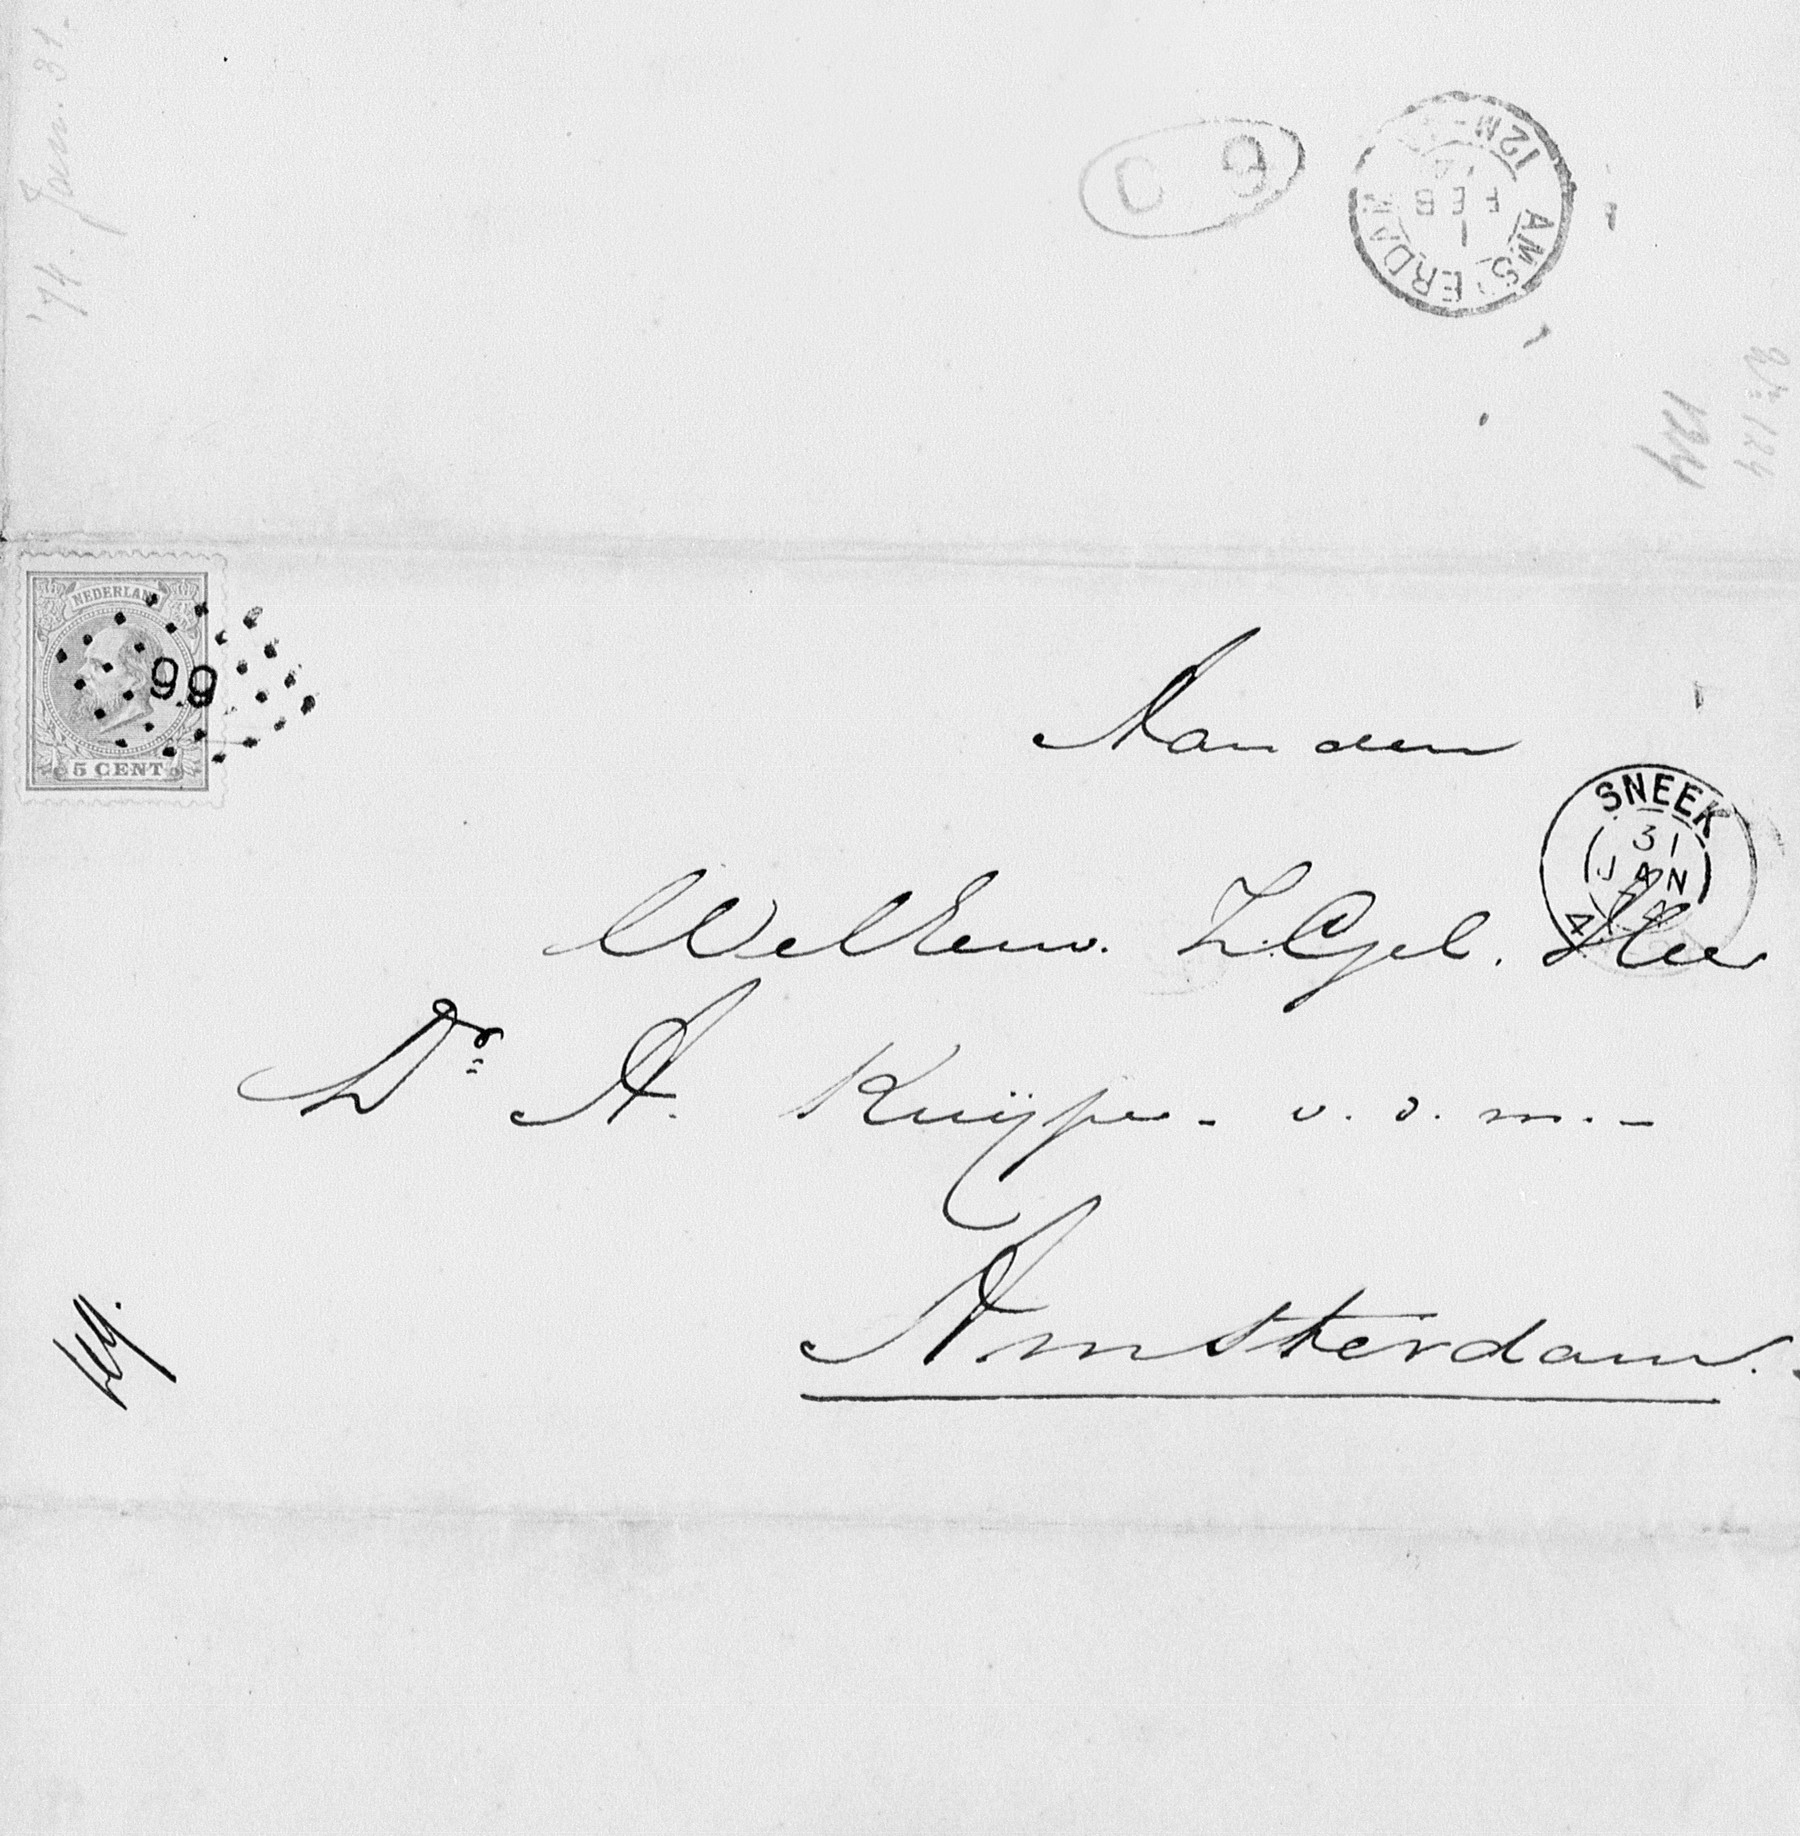 '74. Jan. 31.
AMSTERDAM
12M
1
FEB
74
NEDERLAND
99
5 CENT
Aan den
SNEEK
31
JAN
WelEerw. Z.Gel. Heer
Dr. A. Kuijper - v. d. m. -
Amsterdam.